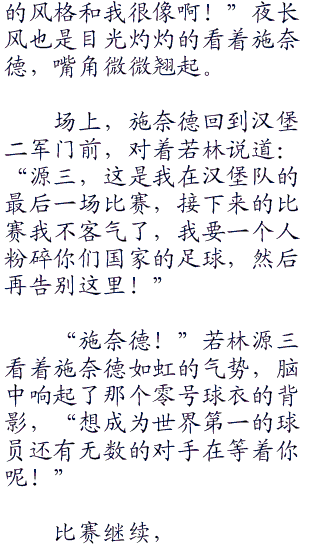 的风格和我很像啊！”夜长
风也是目光灼灼的看着施奈
德，嘴角微微翘起。
场上，施奈德回到汉堡
二军门前，对着若林说道：
“源三，这是我在汉堡队的
最后一场比赛，接下来的比
赛我不客气了，我要一个人
粉碎你们国家的足球，然后
再告别这里！”
“施奈德！”若林源三
看着施奈德如虹的气势，脑
中响起了那个零号球衣的背
影，“想成为世界第一的球
员还有无数的对手在等着你
呢！”
比赛继续，